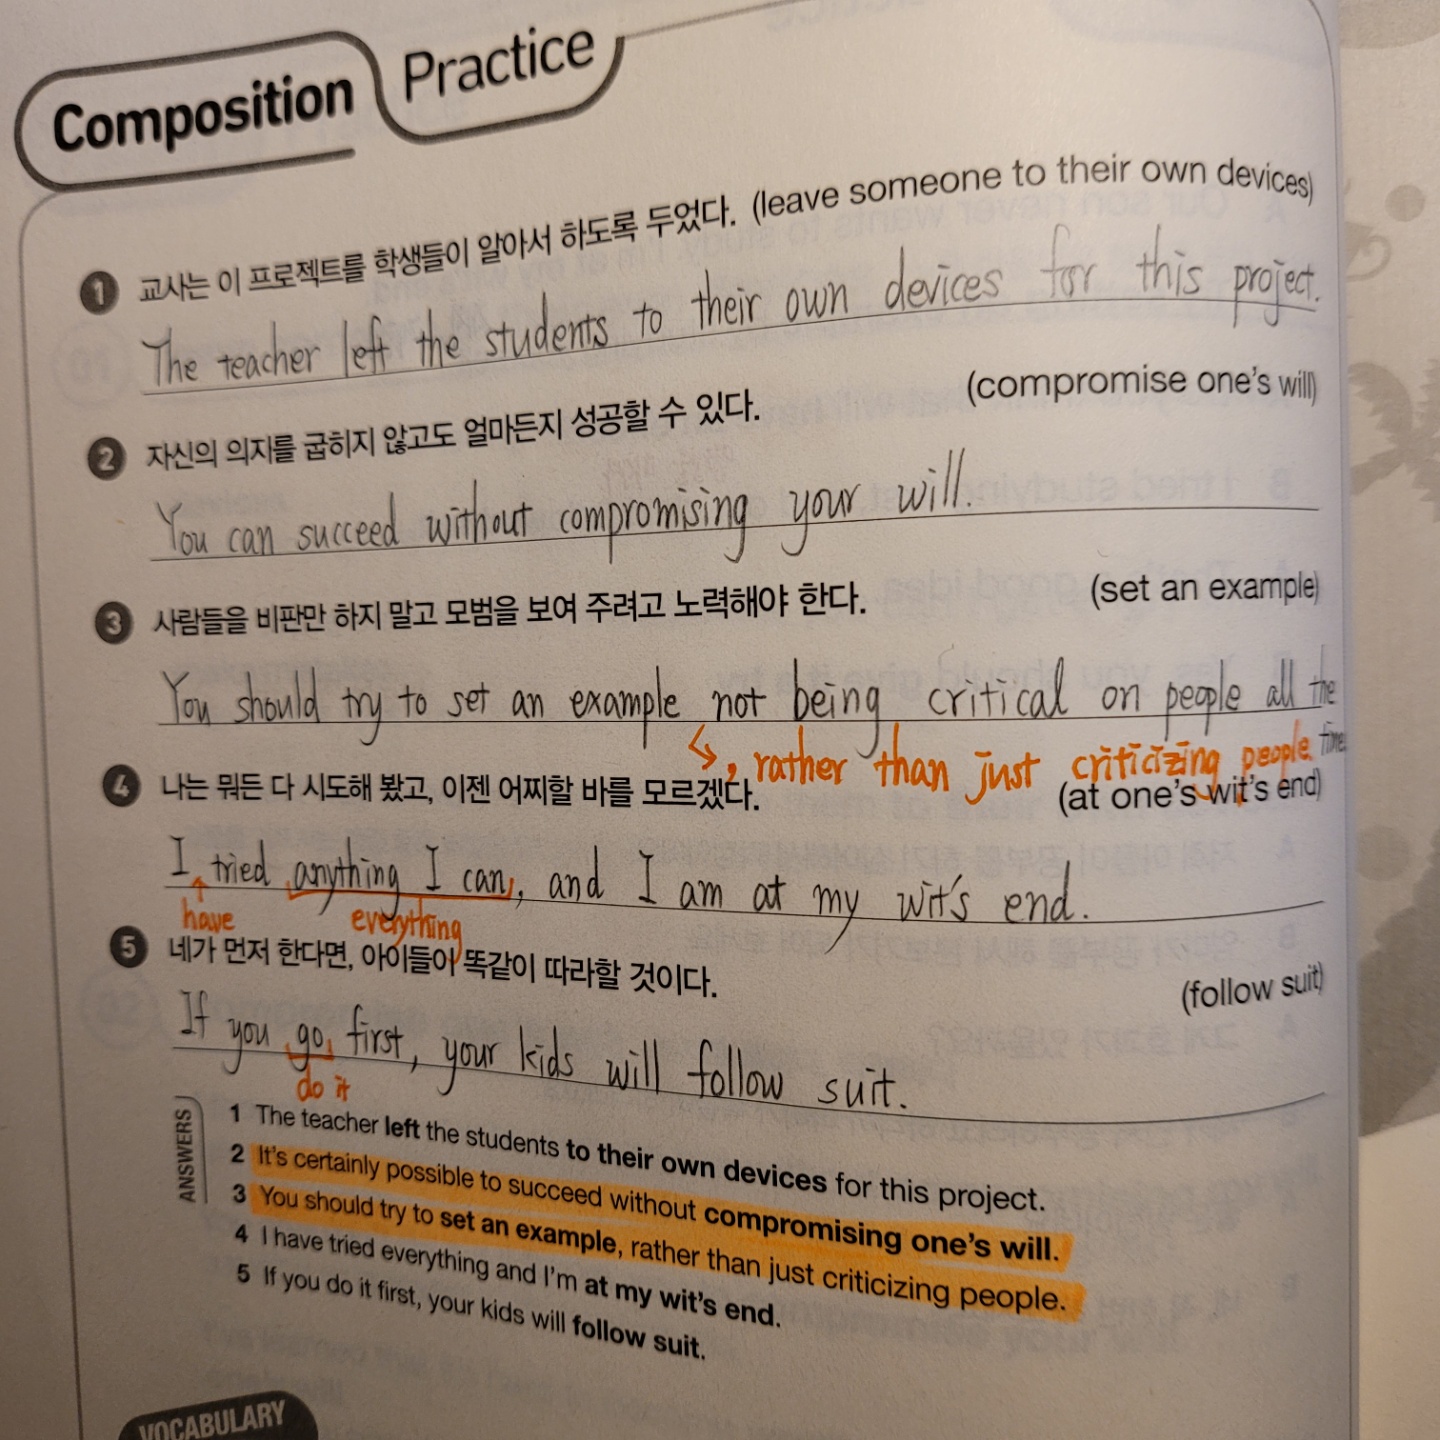 Composition Practice
1 교사는 이 프로젝트를 학생들이 알아서 하도록 두었다. (leave someone to their own devices)
The teacher left the students to their own devices for this project.
2 자신의 의지를 굽히지 않고도 얼마든지 성공할 수 있다. (compromise one's will)
You can succeed without compromising your will.
3 사람들을 비판만 하지 말고 모범을 보여 주려고 노력해야 한다. (set an example)
You should try to set an example not being critical on people all the time.
, rather than just criticizing people
4 나는 뭐든 다 시도해 봤고, 이젠 어찌할 바를 모르겠다. (at one's wit's end)
I tried anything I can, and I am at my wit's end.
have everything
5 네가 먼저 한다면, 아이들이 똑같이 따라할 것이다. (follow suit)
If you go first, your kids will follow suit.
do it
ANSWERS
1 The teacher left the students to their own devices for this project.
2 It's certainly possible to succeed without compromising one's will.
3 You should try to set an example, rather than just criticizing people.
4 I have tried everything and I'm at my wit's end.
5 If you do it first, your kids will follow suit.
VOCABULARY